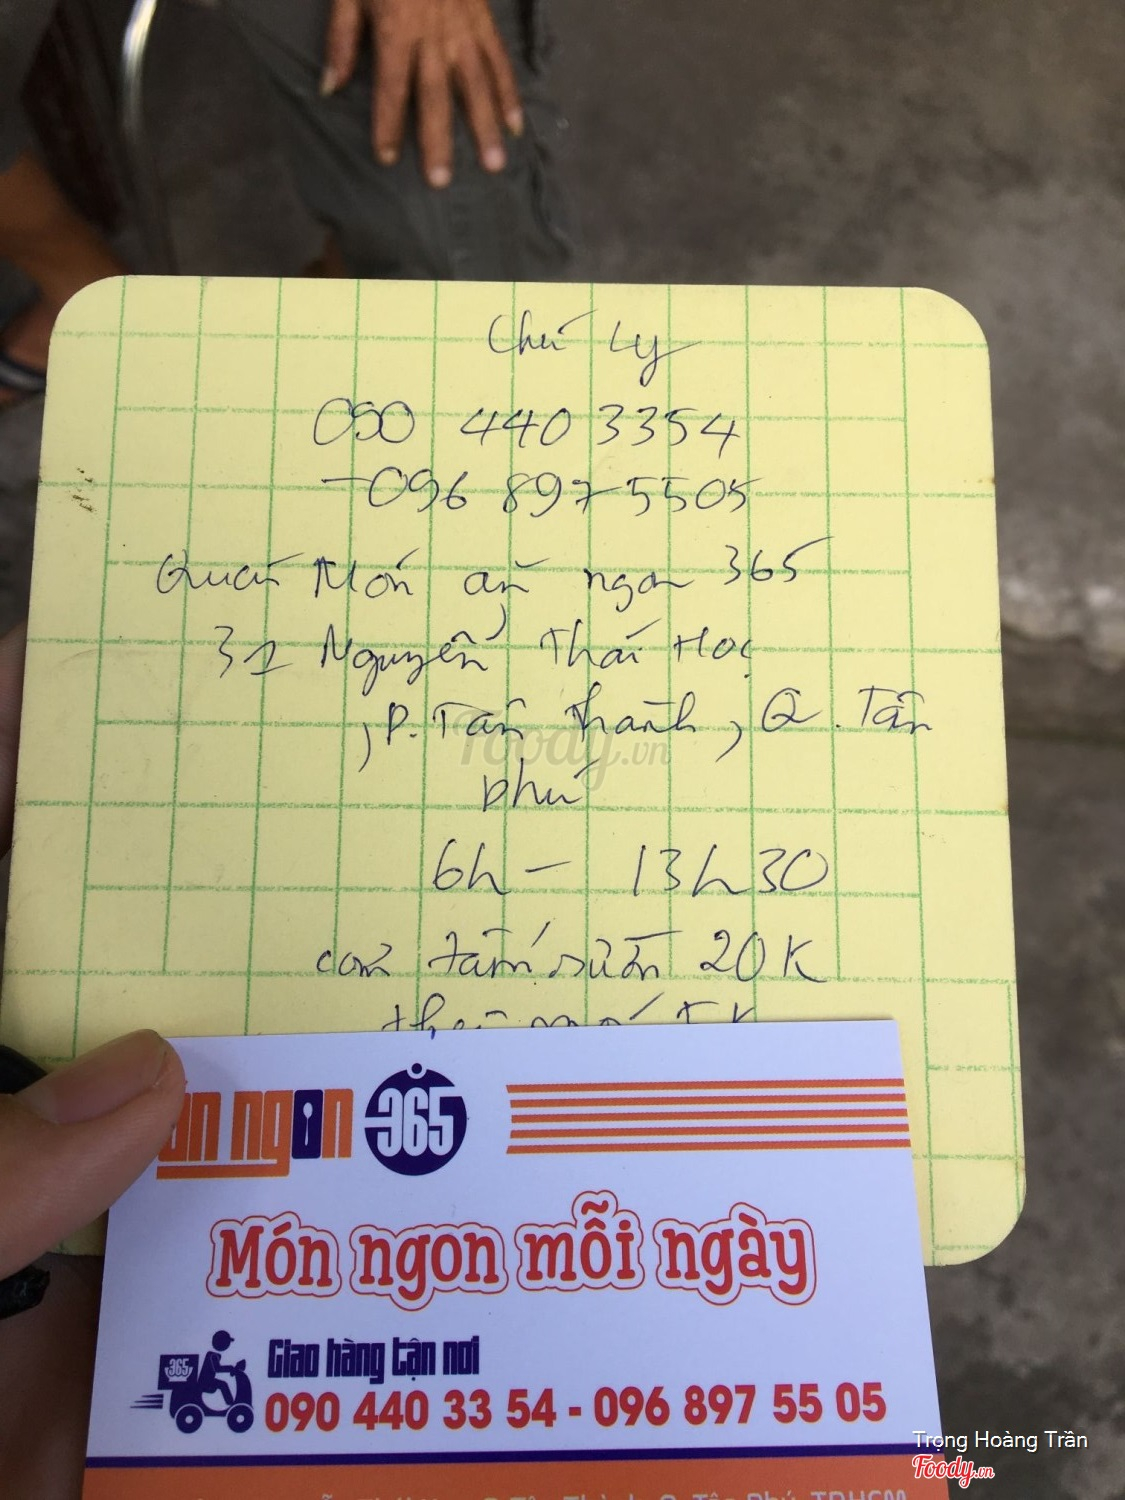 Chú Ly
090 440 3354
-096 897 5505
Quán Món ăn ngon 365
31 Nguyễn Thái Học
, P. Tân thành, Q. Tân
phú
6h - 13h30
cơm tấm sườn 20K
Foody.vn
ăn ngon 365
Món ngon mỗi ngày
365
Giao hàng tận nơi
090 440 33 54 - 096 897 55 05
Trọng Hoàng Trần
Foody.vn